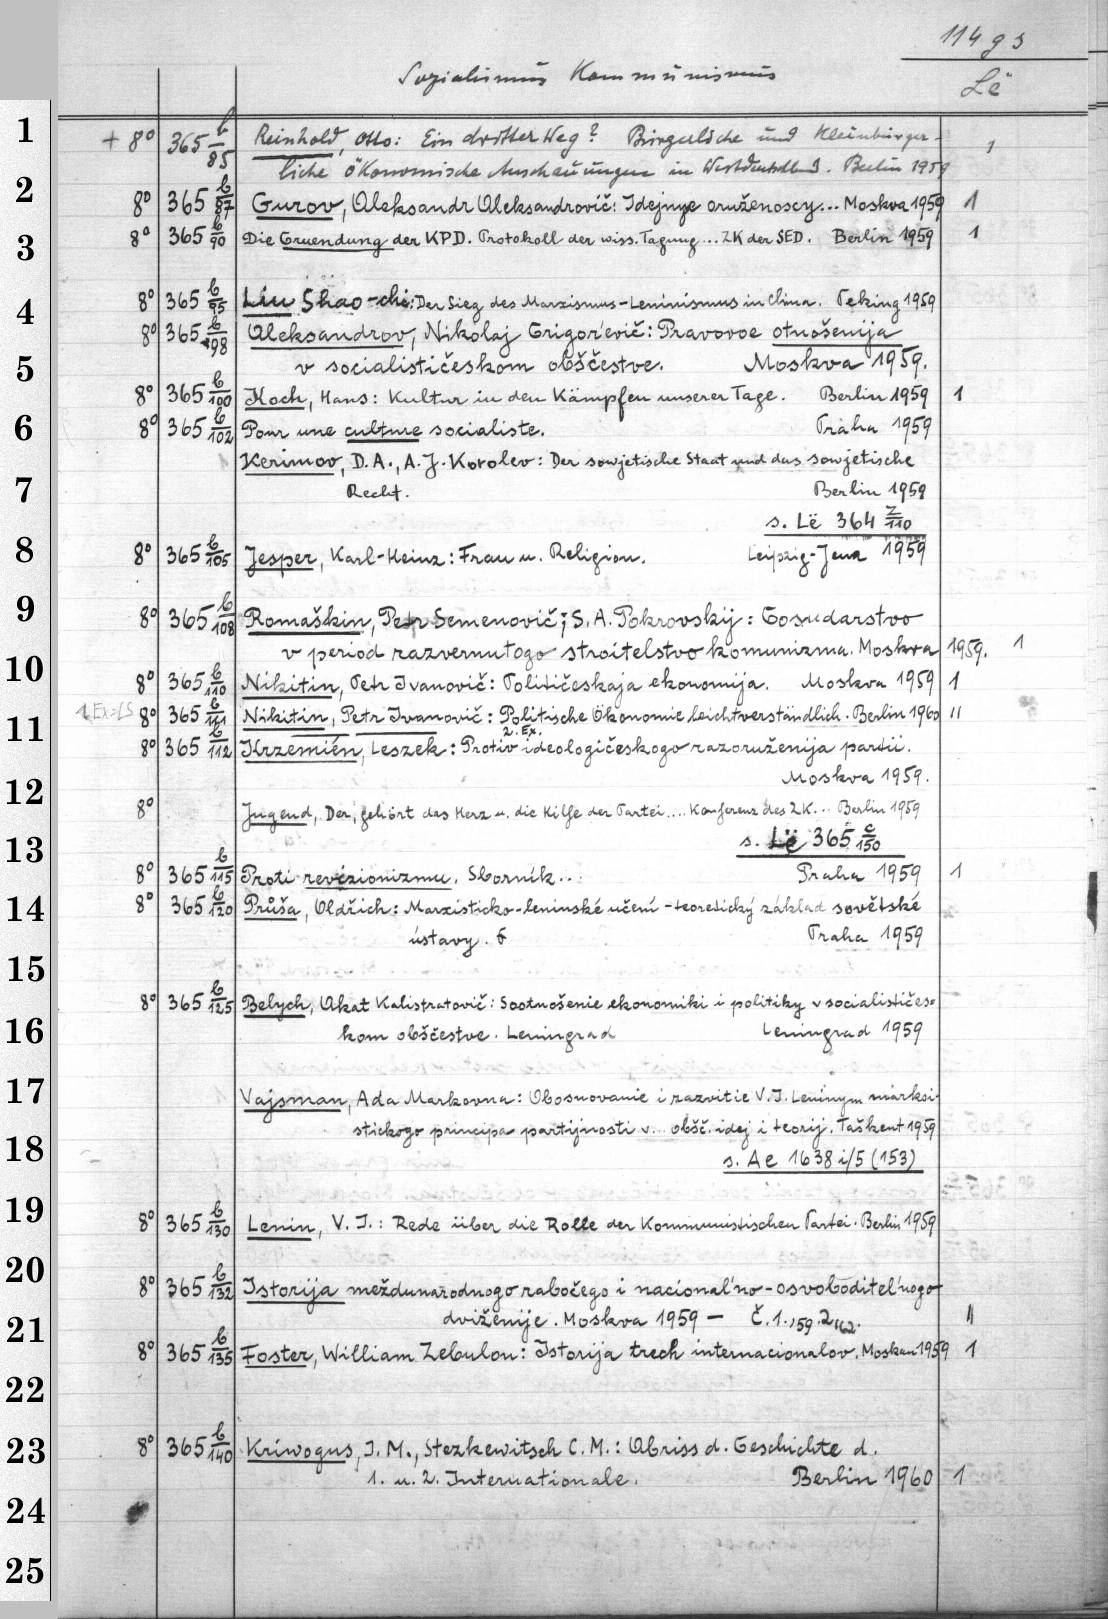 114 g 3
Sozialismus Kommunismus Lë
1 + 8° 365 b/85 Reinhold, Otto: Ein dritter Weg? Bürgerliche und kleinbürger-
liche ökonomische Anschauungen in Westdeutschland. Berlin 1959 1
2 8° 365 b/87 Gurov, Aleksandr Aleksandrovič: Idejnye oruženoscy... Moskva 1959 1
3 8° 365 b/90 Die Gruendung der KPD. Protokoll der wiss. Tagung ... ZK der SED. Berlin 1959 1
4 8° 365 b/95 Liu Shao-chi: Der Sieg des Marxismus-Leninismus in China. Peking 1959
8° 365 b/98 Aleksandrov, Nikolaj Grigor'evič: Pravovoe otnošenija
5 v socialističeskom obščestve. Moskva 1959.
8° 365 b/100 Koch, Hans: Kultur in den Kämpfen unserer Tage. Berlin 1959 1
6 8° 365 b/102 Pour une culture socialiste. Praha 1959
Kerimov, D.A., A.J. Korolev: Der sowjetische Staat und das sowjetische
7 Recht. Berlin 1959
s. Lë 364 z/110
8 8° 365 b/105 Jesper, Karl-Heinz: Frau u. Religion. Leipzig-Jena 1959
9 8° 365 b/108 Romaškin, Petr Semenovič; S.A. Pokrovskij: Gosudarstvo
v period razvernutogo stroitelstvo komunizma. Moskva 1959. 1
10 8° 365 b/110 Nikitin, Petr Ivanovič: Političeskaja ekonomija. Moskva 1959 1
1 Ex=LS 8° 365 b/111 Nikitin, Petr Ivanovič: Politische Ökonomie leichtverständlich. Berlin 1960 11
11 2. Ex.
8° 365 b/112 Krzemień, Leszek: Protiv ideologičeskogo razoruženija partii.
Moskva 1959.
12 8° Jugend, Der, gehört das Herz u. die Hilfe der Partei .... Konferenz des ZK... Berlin 1959
s. Lë 365 c/150
13 8° 365 b/115 Proti revizionizmu. Sborník.. Praha 1959 1
14 8° 365 b/120 Průša, Oldřich: Marxisticko-leninské učení - teoretický základ sovětské
ústavy. Praha 1959
15
8° 365 b/125 Belych, Akat Kalistratovič: Sootnošenie ekonomiki i politiky v socialističes=
16 kom obščestve. Leningrad Leningrad 1959
17 Vajsman, Ada Markovna: Obosnovanie i razvitie V.I. Leninym marksi-
stickogo principa partijnosti v... obšč. idej i teorij. Taškent 1959
18 s. Ae 1638 i/5 (153)
19 8° 365 b/130 Lenin, V. I.: Rede über die Rolle der Kommunistischen Partei. Berlin 1959
20 8° 365 b/132 Istorija meždunarodnogo rabočego i nacional'no-osvoboditel'nogo
21 dviženije. Moskva 1959 — Č.1.,'59. 2,'62. 11
8° 365 b/135 Foster, William Zebulon: Istorija trech internacionalov. Moskau 1959 1
22
23 8° 365 b/140 Kriwogus, I. M., Stezkewitsch C.M.: Abriss d. Geschichte d.
1. u. 2. Internationale. Berlin 1960 1
24
25